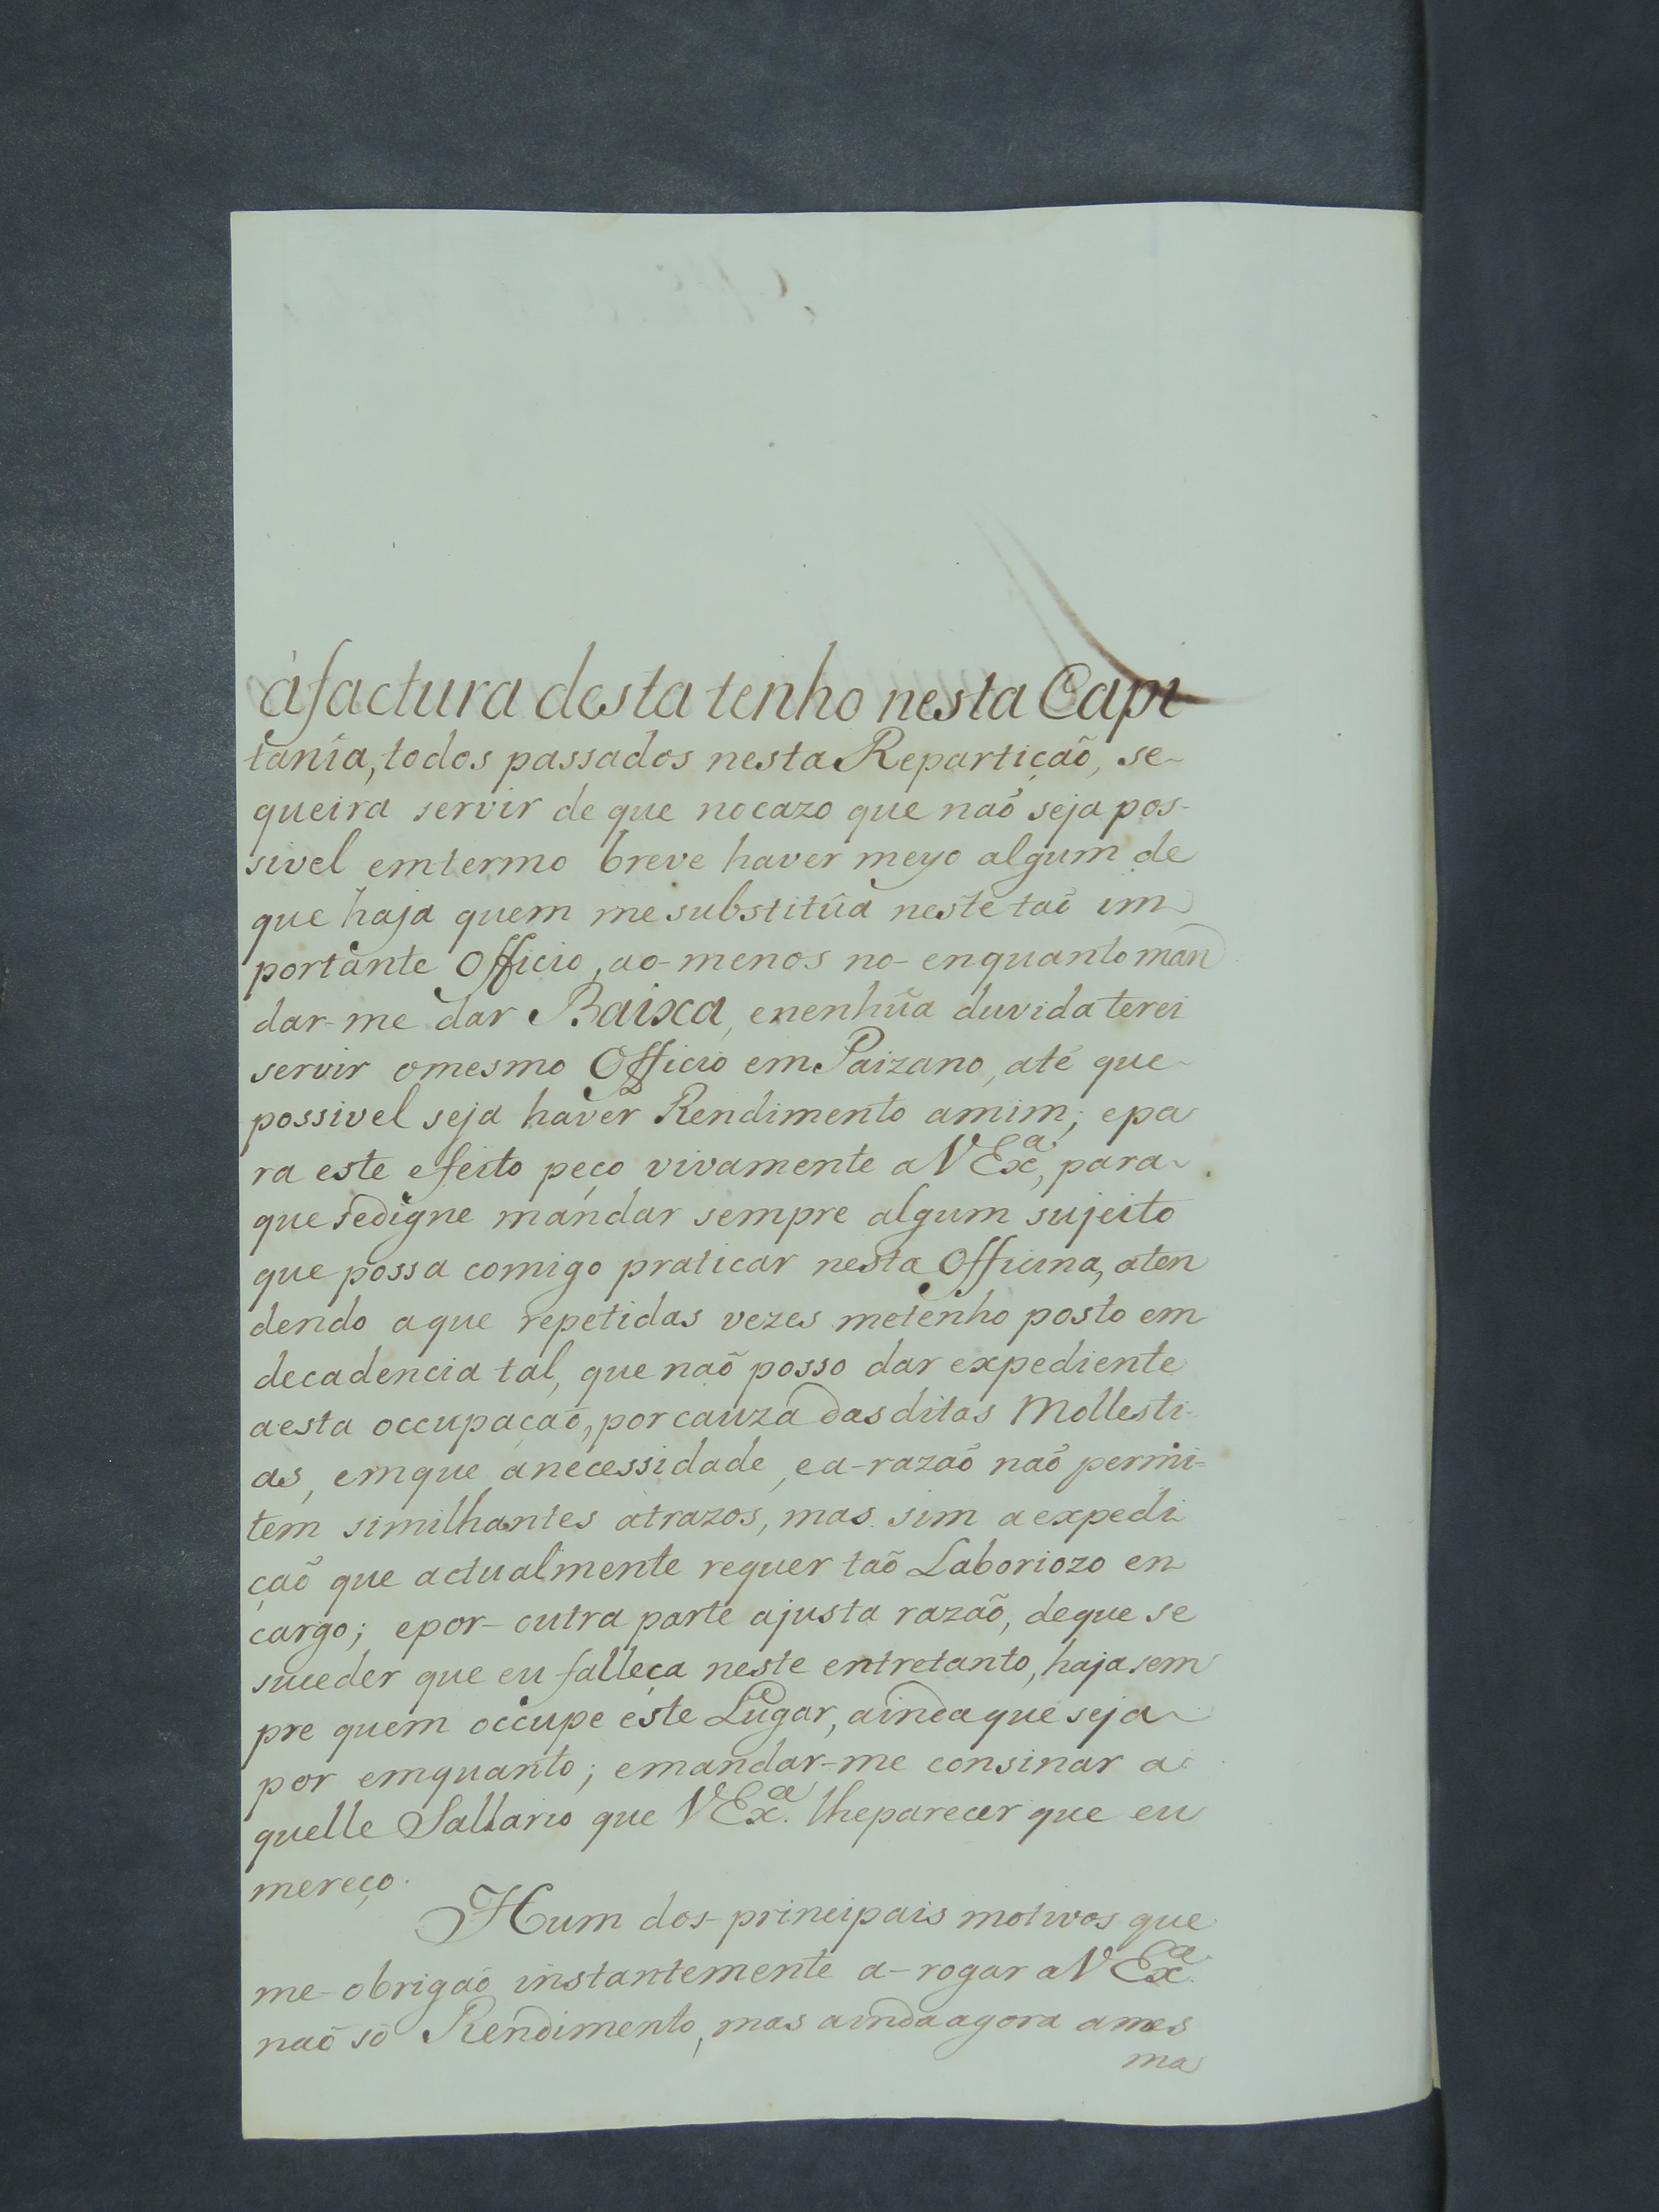 àfactura desta tenho nesta Capi
tanía, todos passados nesta Repartição, se
queira servir de que nocazo que naõ seja pos-
sivel emtermo breve haver meyo algum de
que haja quem mesubstitûa neste taõ im
portante Officio, ao-menos no-enquanto man
dar-me dar Baixa, enenhũa duvida terei
servir omesmo Officio em Paizano, até que
possivel seja haver Rendimento amim; epa
ra este efeito peço vivamente a V Exª, para
que sedigne mandar sempre algum sujeito
que possa comigo praticar nesta Officina, aten
dendo aque repetidas vezes metenho posto em
decadencia tal, que naõ posso dar expediente
aesta occupaçaõ, porcauza das ditas Mollesti-
as, emque anecessidade, ea-razaõ naõ permi=
tem similhantes atrazos, mas sim aexpedi
çaõ que actualmente requer taõ Laboriozo en
cargo; epor-outra parte ajusta razão, deque se
suceder que eu falleça neste entretanto, haja sem
pre quem occupe éste Lugar, aindaque seja
por emquanto; emandar-me consinar a
quelle Sallario que V Exª. lheparecer que eu
mereço.
Hum dos-principais motivos que
me-obrigaõ instantemente a-rogar a V Exª.
naõ só Rendimento, mas aindaagora ames
ma